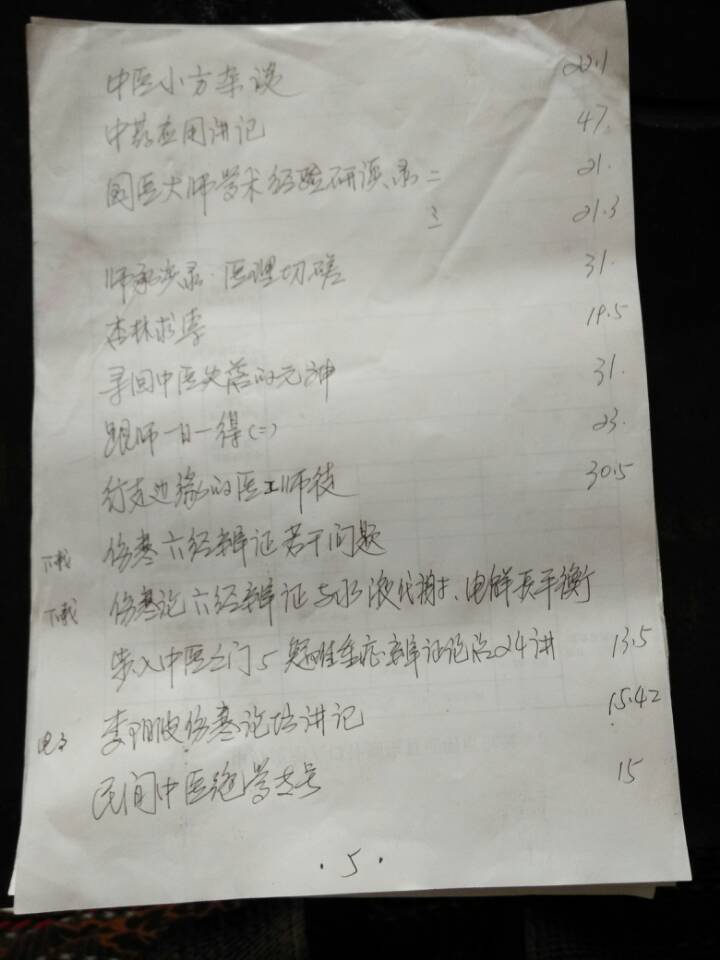 中医小方杂谈 20.1
中药应用讲记 47.
国医大师学术经验研读录二 21.
三 21.3
师承谈录·医理切磋 31.
杏林求真 19.5
寻回中医失落的元神 31.
跟师一日一得(二) 23.
行走边缘的医工师徒 30.5
下载 伤寒六经辨证若干问题
下载 伤寒论六经辨证与水液代谢、电解质平衡
步入中医之门5 疑难重症辨证论治24讲 13.5
李阳波伤寒论坛讲记 15.42
民间中医绝学 15
·5·